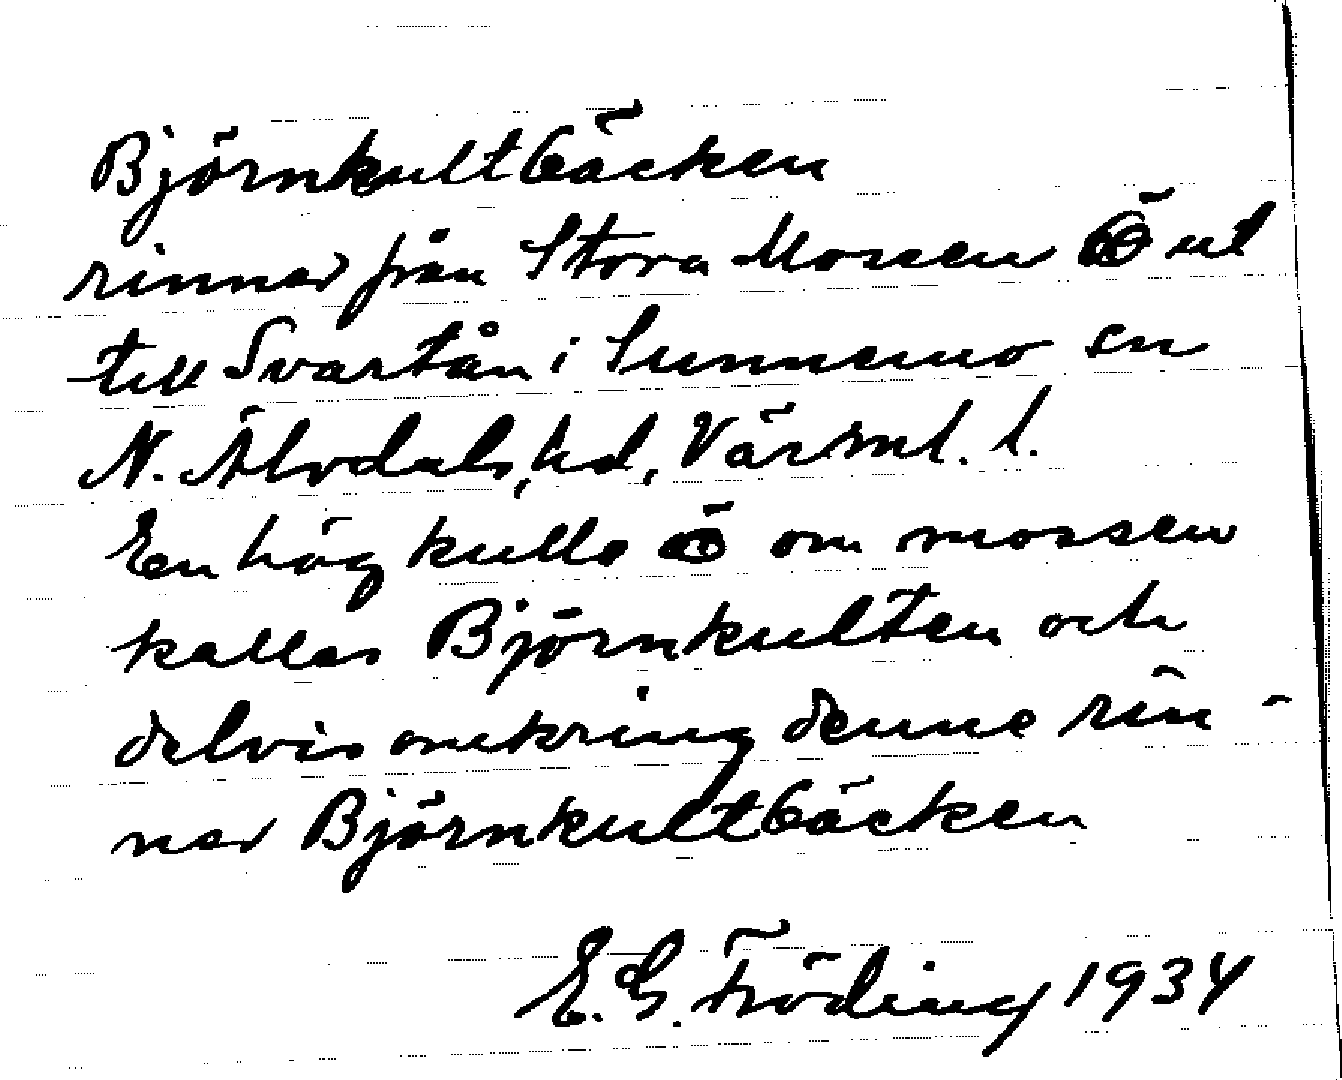 Björnkultbäcken
rinner från Stora Mossen Ö ut
till Svartån i Sunnemo sn
N. Älvdals hd, Värml. l.
En hög kulle Ö om mossen
kallas Björnkulten och
delvis omkring denne rin-
ner Björnkultbäcken
E. G. Fröding 1934